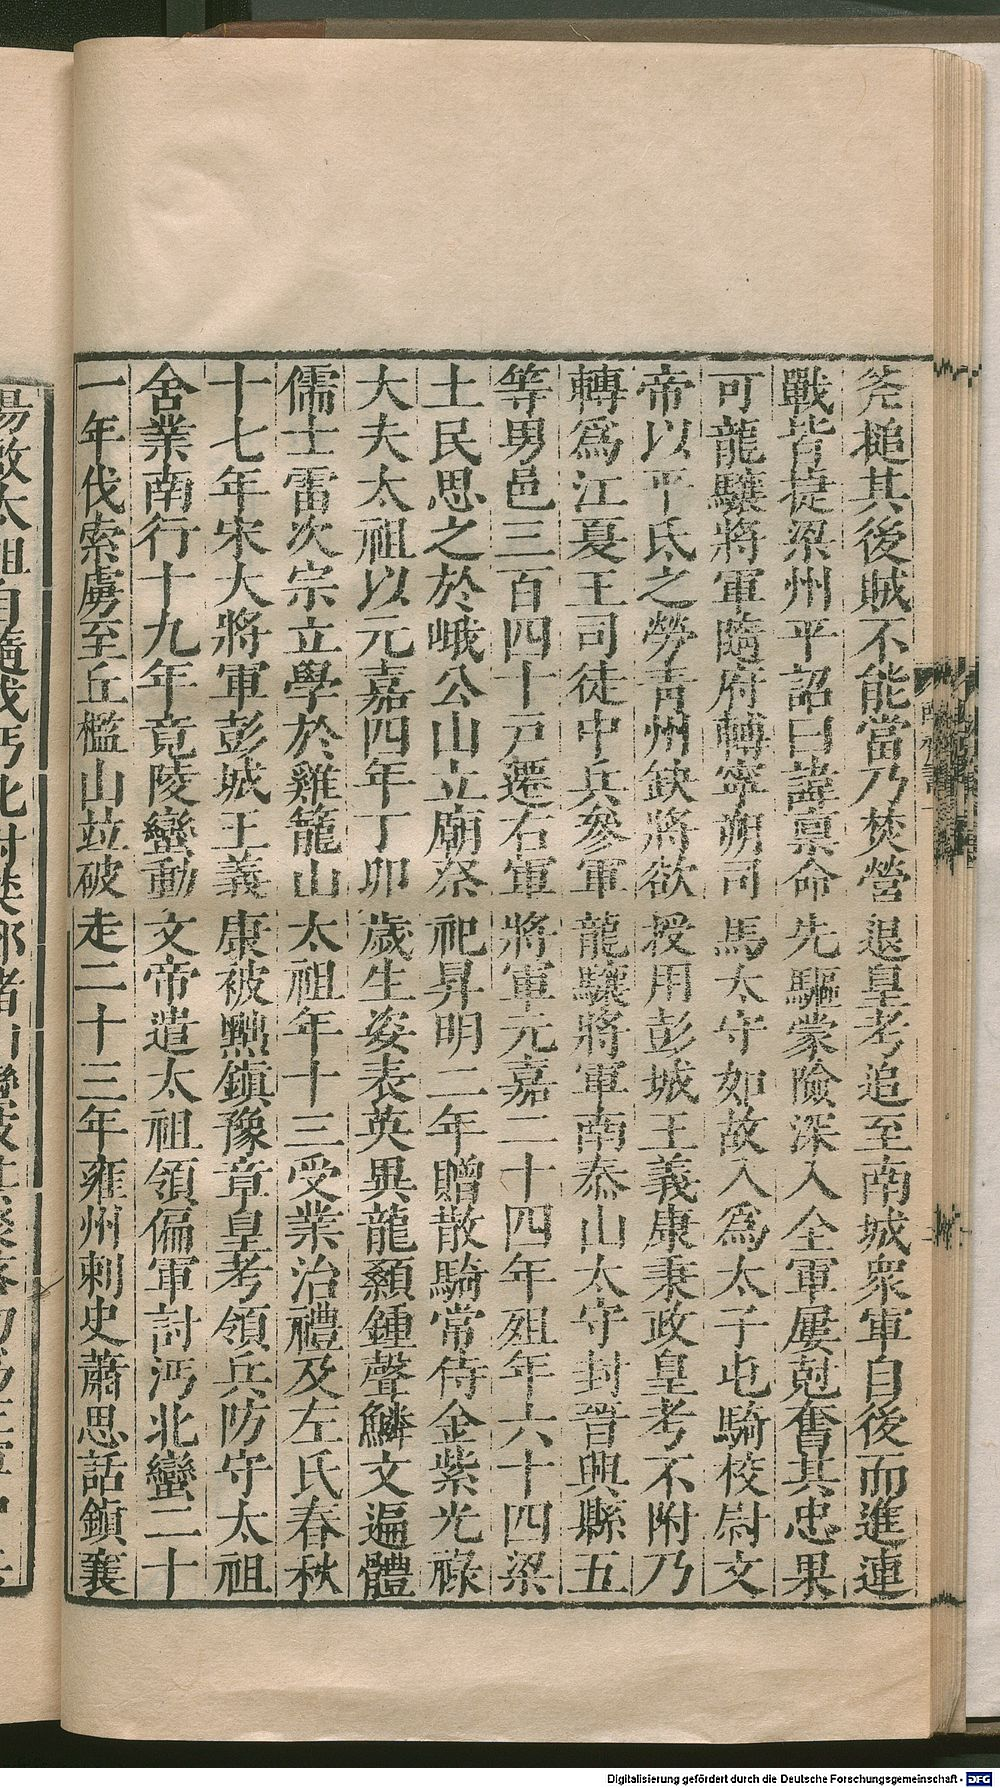 槌其後賊不能當乃焚營退皇考追至南城衆軍自後而進連
戰皆捷梁州平詔曰諱稟命先驅蒙險深入全軍屢剋奮其忠果
可龍驤將軍隨府轉寧朔司馬太守如故入爲太子屯騎校尉文
帝以平氐之勞青州缺將欲授用彭城王義康秉政皇考不附乃
轉爲江夏王司徒中兵參軍龍驤將軍南泰山太守封晉興縣五
等男邑三百四十戸遷右軍將軍元嘉二十四年殂年六十四梁
土民思之於峨公山立廟祭祀昇明二年贈散騎常侍金紫光祿
大夫太祖以元嘉四年丁卯歲生姿表英異龍顙鍾聲鱗文遍體
儒士雷次宗立學於雞籠山太祖年十三受業治禮及左氏春秋
十七年宋大將軍彭城王義康被黜鎭豫章皇考領兵防守太祖
舍業南行十九年竟陵蠻動文帝遣太祖領偏軍討沔北蠻二十
一年伐索虜至丘檻山竝破走二十三年雍州刺史蕭思話鎭襄
Digitalisierung gefördert durch die Deutsche Forschungsgemeinschaft - DFG